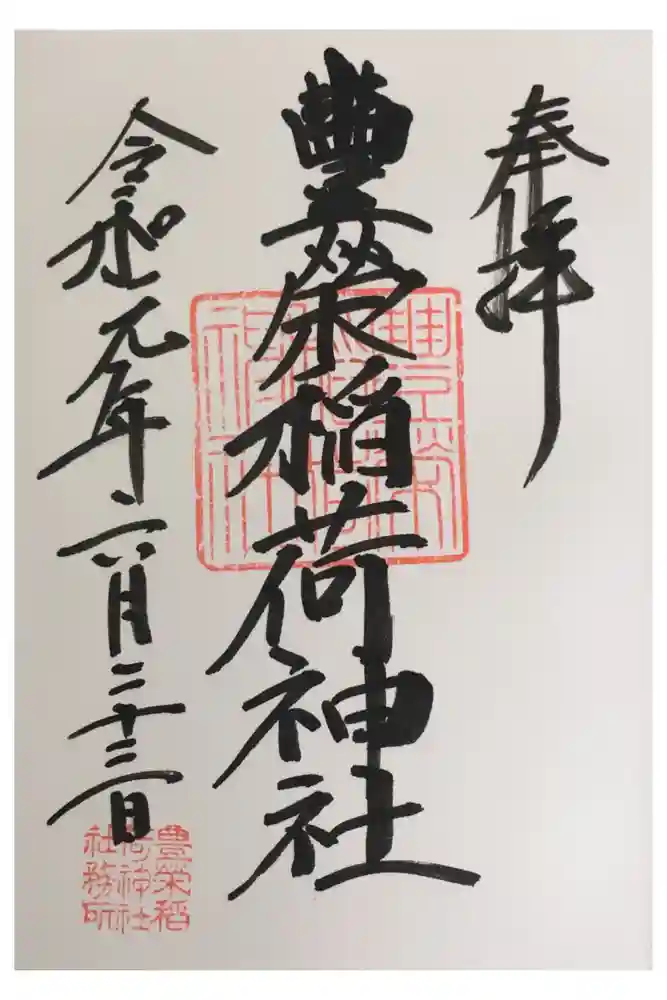 奉拝
豊榮稲荷神社
令和元年六月二十三日
豊榮稲
荷神社
社務所